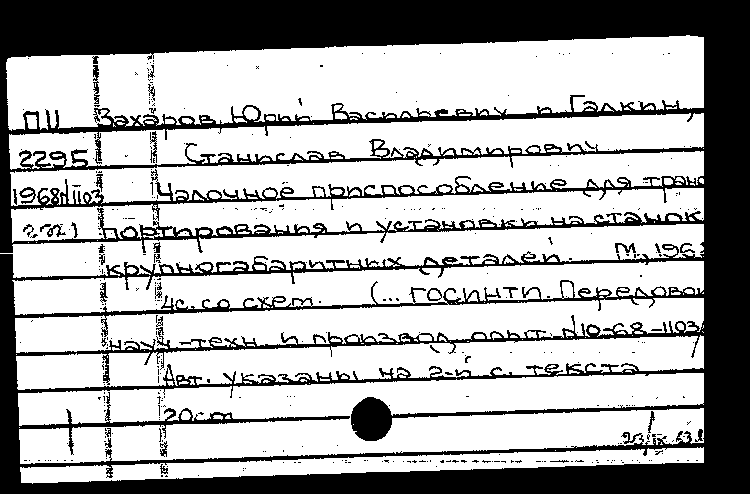 ПЦ Захаров, Юрий Васильевич и Галкин,
2295 Станислав Владимирович
1968№1103 Чалочное приспособление для транс
портирования и установки на станок
крупногабаритных деталей. М., 1968
4с. со схем. (... ГОСИНТИ. Передовой
науч.-техн. и производ. опыт. №10-68-1103/
Авт. указаны на 2-й с. текста.
20см